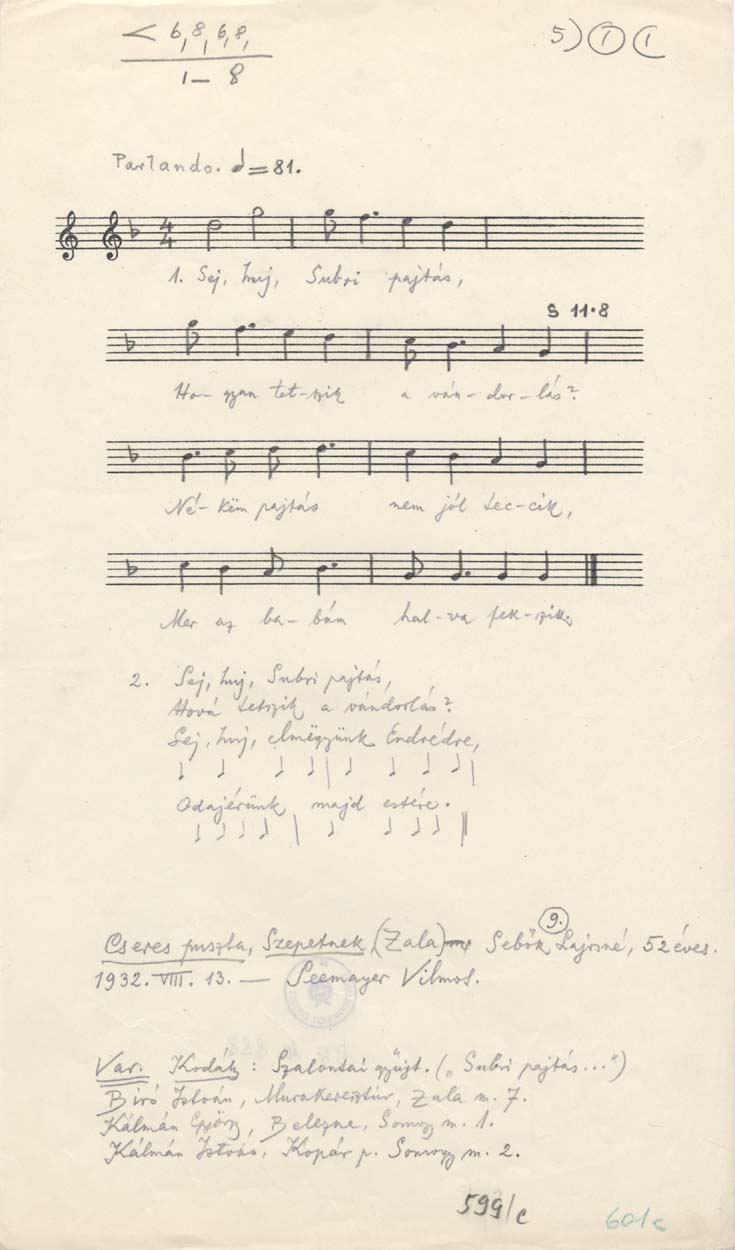 < 6, 8, 6, 8,
1– 8
5) I 1
Parlando. = 81.
4
4
1. Sej, huj, Subri pajtás,
S 11·8
Ho- gyan tet-szik a ván- dor-lás?
Né-këm pajtás nem jól tec-cik,
Mer az ba-bám hal-va fek-szik.
2. Sej, huj, Subri pajtás,
Hová tetszik a vándorlás?
Sej, huj, elmëgyünk Endrédre,
Odajérünk majd estére.
9.
Cseres puszta, Szepetnek (Zala) Sebők Lajosné, 52 éves.
1932. VIII. 13. — Seemayer Vilmos.
Var. Kodály: Szalontai gyűjt. („Subri pajtás...")
Biró István, Murakeresztúr, Zala m. 7.
Kálmán György, Belezna, Somogy m. 1.
Kálmán István, Kopár p. Somogy m. 2.
599/c
601c